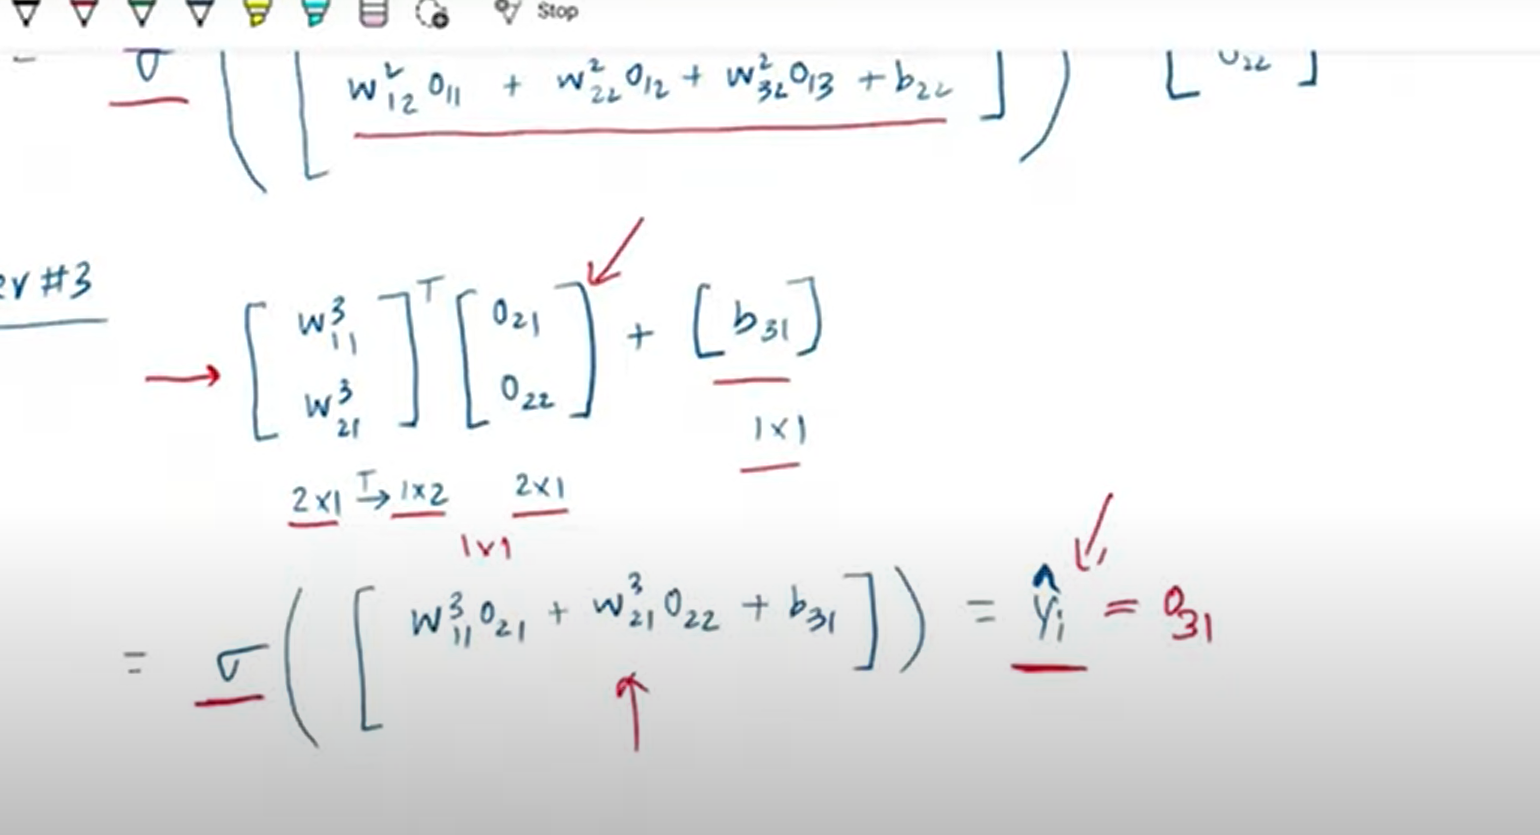 Stop
σ ( [ w²₁₂ o₁₁ + w²₂₂ o₁₂ + w²₃₂ o₁₃ + b₂₂ ] ) [ o₂₂ ]
er #3
→ [ w³₁₁ w³₂₁ ]ᵀ [ o₂₁ o₂₂ ] + [ b₃₁ ]
1×1
2×1 ᵀ→ 1×2 2×1
1×1
= σ ( [ w³₁₁ o₂₁ + w³₂₁ o₂₂ + b₃₁ ] ) = ŷᵢ = o₃₁